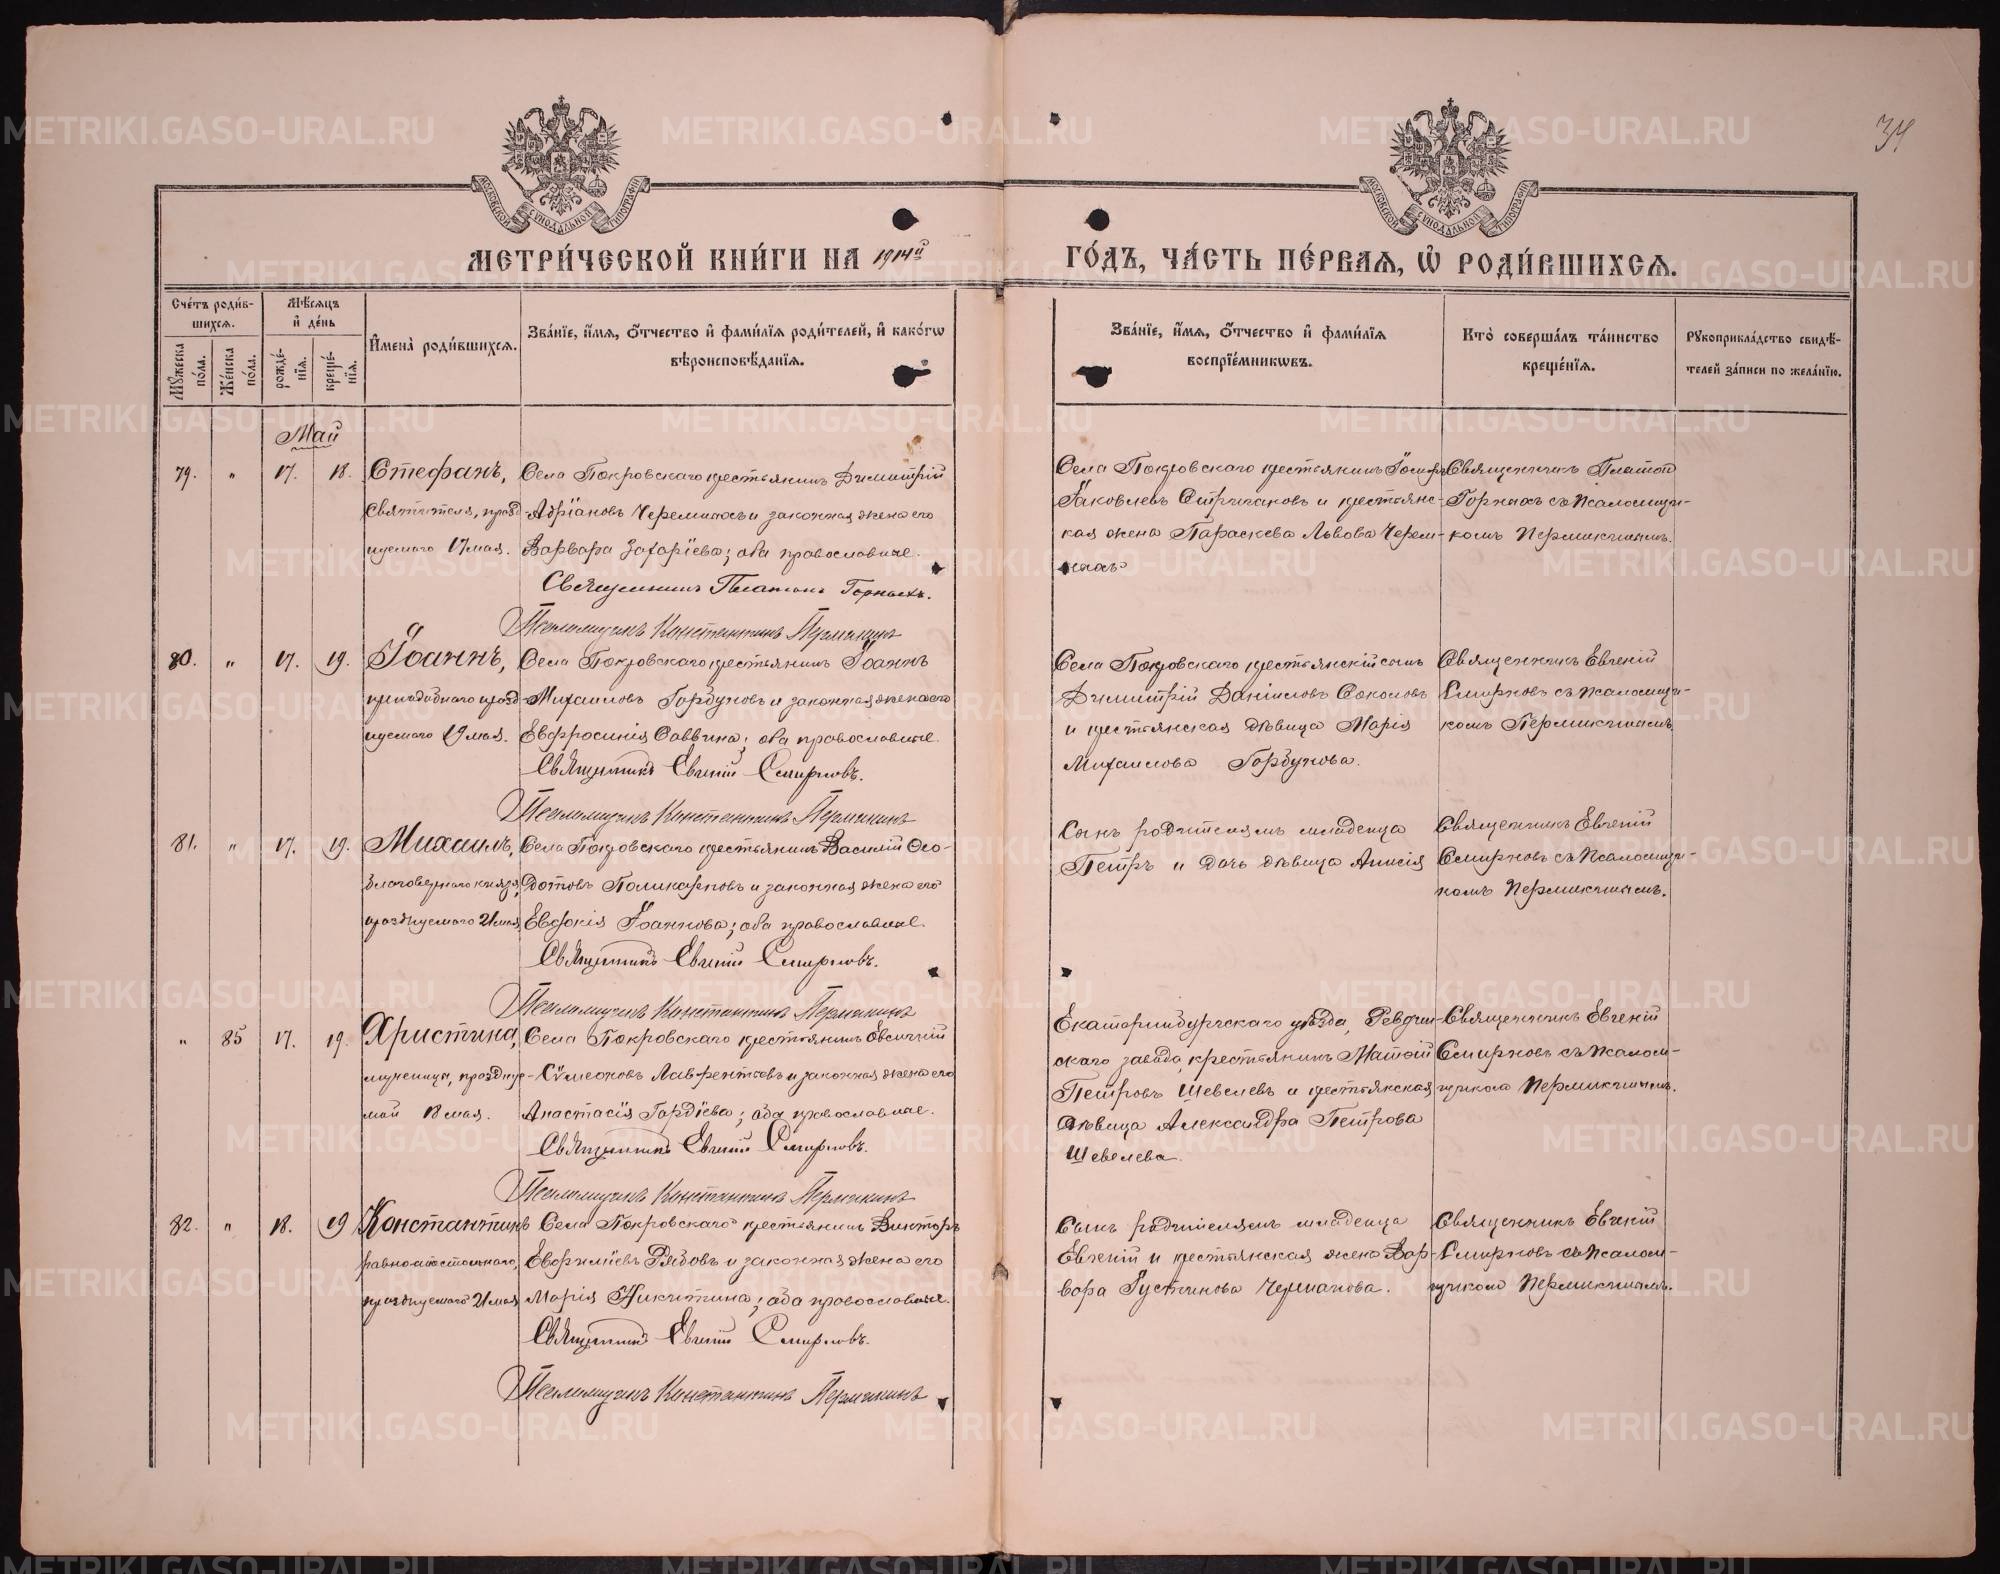 34
МОСКОВСКОЙ СѴНОДАЛЬНОЙ ТИПОГРАФІИ
МОСКОВСКОЙ СѴНОДАЛЬНОЙ ТИПОГРАФІИ
МЕТРИ́ЧЕСКОЙ КНИ́ГИ НА 1914й ГО́ДЪ, ЧА́СТЬ ПЕ́РВАЯ, Ѡ РОДИ́ВШИХСЯ.
Сче́тъ роди́в-
шихся.
Мꙋ́жеска по́ла.
Же́нска по́ла.
Мѣ́сяцъ
и҆ де́нь
рожде́-
нїѧ.
креще́-
нїѧ.
И҆мена̀ роди́вшихся.
Зва́нїе, и҆́мя, ѻ҆́тчество и҆ фами́лїя роди́телей, и҆ како́гѡ
вѣроисповѣ́данїя.
Зва́нїе, и҆́мя, ѻ҆́тчество и҆ фами́лїя
воспрїе́мникѡвъ.
Кто̀ соверша́лъ та́инство
креще́нїя.
Рꙋкоприкла́дство свидѣ́-
телей за́писи по жела́нїю.
Май
79. " 17. 18. Стефанъ,
Святителя, празд-
нуемаго 17 мая.
Села Покровскаго крестьянинъ Димитрій
Адріановъ Черемныхъ и законная жена его
Варвара Захаріева; оба православные.
Священникъ Платонъ Горныхъ.
Псаломщикъ Константинъ Пермикинъ
Села Покровскаго крестьянинъ
Іаковлевъ и крестьянс-
кая жена Параскева Львова Черем-
ныхъ
Священникъ Платон
Горныхъ съ псаломщи-
комъ Пермикинымъ.
80. " 17. 19. Іоаннъ,
преподобнаго празд-
нуемаго 19 мая.
Села Покровскаго крестьянинъ Іоаннъ
Михаиловъ Горбуновъ и законная жена его
Евфросинія Саввина; оба православные.
Священникъ Евгеній Смирновъ.
Псаломщикъ Константинъ Пермикинъ
Села Покровскаго крестьянскій сынъ
Димитрій Даніиловъ Соколовъ
и крестьянская дѣвица Марія
Михаилова Горбунова.
Священникъ Евгеній
Смирновъ съ псаломщи-
комъ Пермикинымъ
81. " 17. 19. Михаилъ,
благовернаго князя,
празднуемаго 21 мая,
Села Покровскаго крестьянинъ Василій Ѳео-
дотовъ Поликарповъ и законная жена его
Евдокія Іоаннова; оба православные.
Священникъ Евгеній Смирновъ.
Псаломщикъ Константинъ Пермикинъ
Сынъ родителямъ младенца
Петръ и дочь дѣвица Анисія
Священникъ Евгеній
Смирновъ съ псаломщи-
комъ Пермикинымъ.
" 85 17. 19. Христина,
мученицы, празднуе-
мой 18 мая.
Села Покровскаго крестьянинъ
Сѵмеоновъ Лаврентьевъ и законная жена его
Анастасія Гордіева; оба православные.
Священникъ Евгеній Смирновъ.
Псаломщикъ Константинъ Пермикинъ
Екатеринбургскаго уѣзда, Ревдин-
скаго завода, крестьянинъ Матѳій
Петровъ Шевелевъ и крестьянская
дѣвица Александра Петрова
Шевелева.
Священникъ Евгеній
Смирновъ съ псалом-
щикомъ Пермикинымъ.
82. " 18. 19 Константинъ
равноапостольнаго,
празднуемаго 21 мая
Села Покровскаго крестьянинъ Викторъ
Рябовъ и законная жена его
Марія Никитина; оба православные.
Священникъ Евгеній Смирновъ.
Псаломщикъ Константинъ Пермикинъ
Сынъ родителямъ младенца
Евгеній и крестьянская жена Вар-
вара Іустинова Черпакова.
Священникъ Евгеній
Смирновъ съ псалом-
щикомъ Пермикинымъ.
METRIKI.GASO-URAL.RU